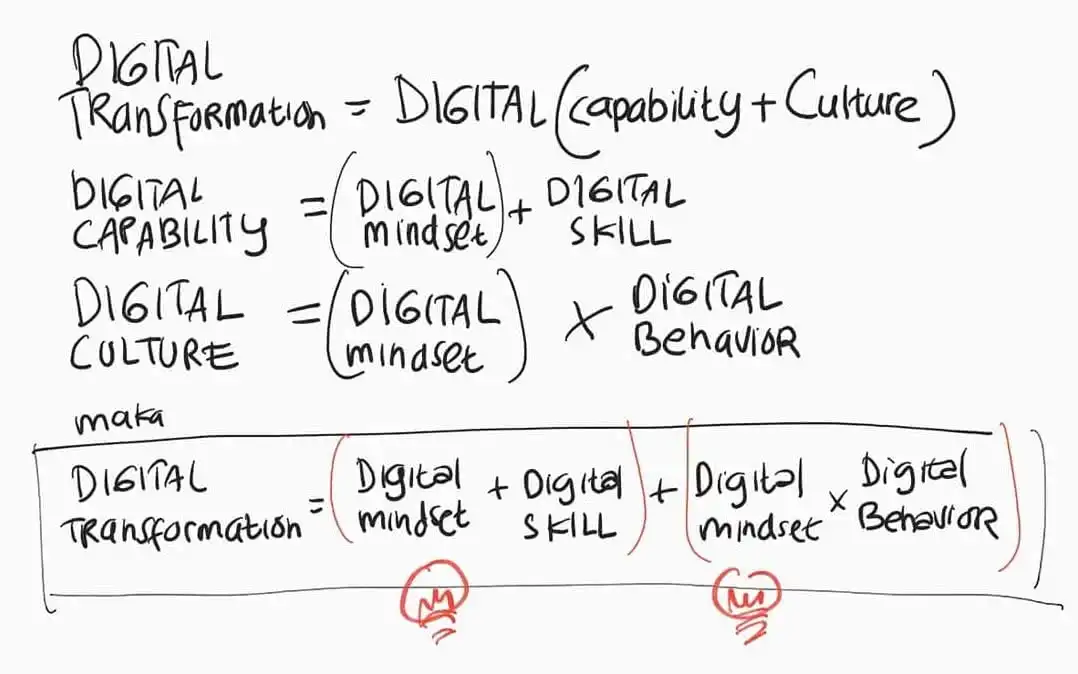 DIGITAL
TRANSFORMATION = DIGITAL (capability + Culture)
DIGITAL CAPABILITY = (DIGITAL mindset) + DIGITAL SKILL
DIGITAL CULTURE = (DIGITAL mindset) × DIGITAL BEHAVIOR
maka
DIGITAL TRANSFORMATION = (Digital mindset + Digital SKILL) + (Digital mindset × Digital BEHAVIOR)